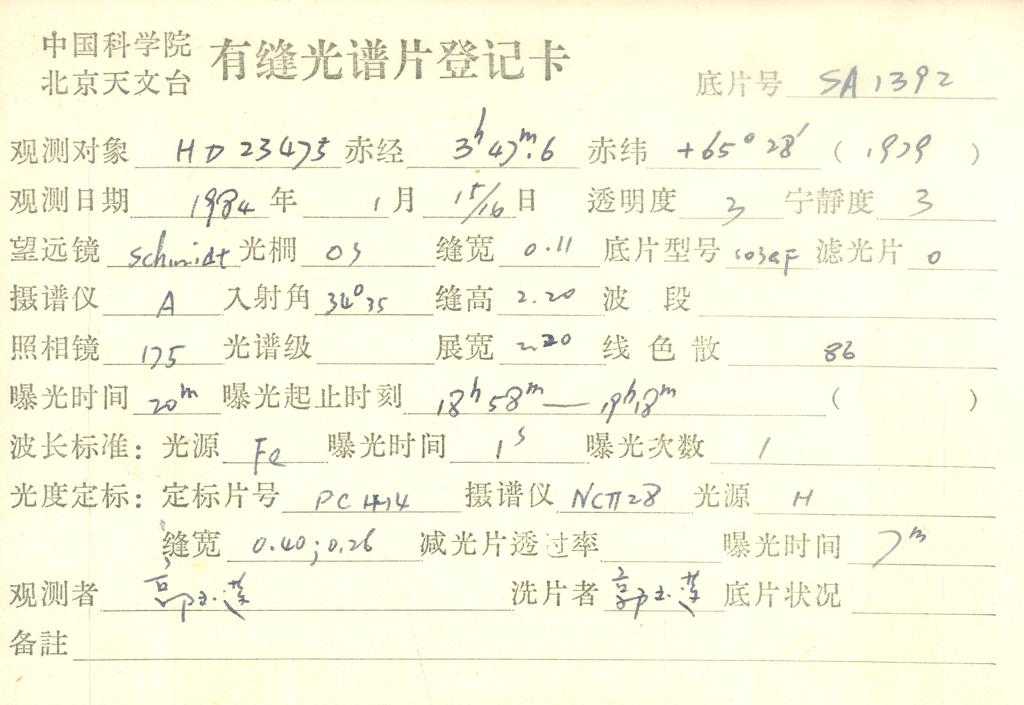 中国科学院
北京天文台 有缝光谱片登记卡 底片号 SA1392
观测对象 HD 23475 赤经 3h47m.6 赤纬 +65°28′ ( 1979 )
观测日期 1984 年 1 月 15/16 日 透明度 3 宁静度 3
望远镜 Schmidt 光栅 03 缝宽 0.11 底片型号 103aF 滤光片 0
摄谱仪 A 入射角 34°35 缝高 2.20 波 段
照相镜 175 光谱级 展宽 2.20 线 色 散 86
曝光时间 20m 曝光起止时刻 18h58m — 19h18m ( )
波长标准: 光源 Fe 曝光时间 1s 曝光次数 1
光度定标: 定标片号 PC 摄谱仪 光源 H
缝宽 0.40;0.26 减光片透过率 曝光时间 7m
观测者 郭玉莲 洗片者 郭玉莲 底片状况
备註